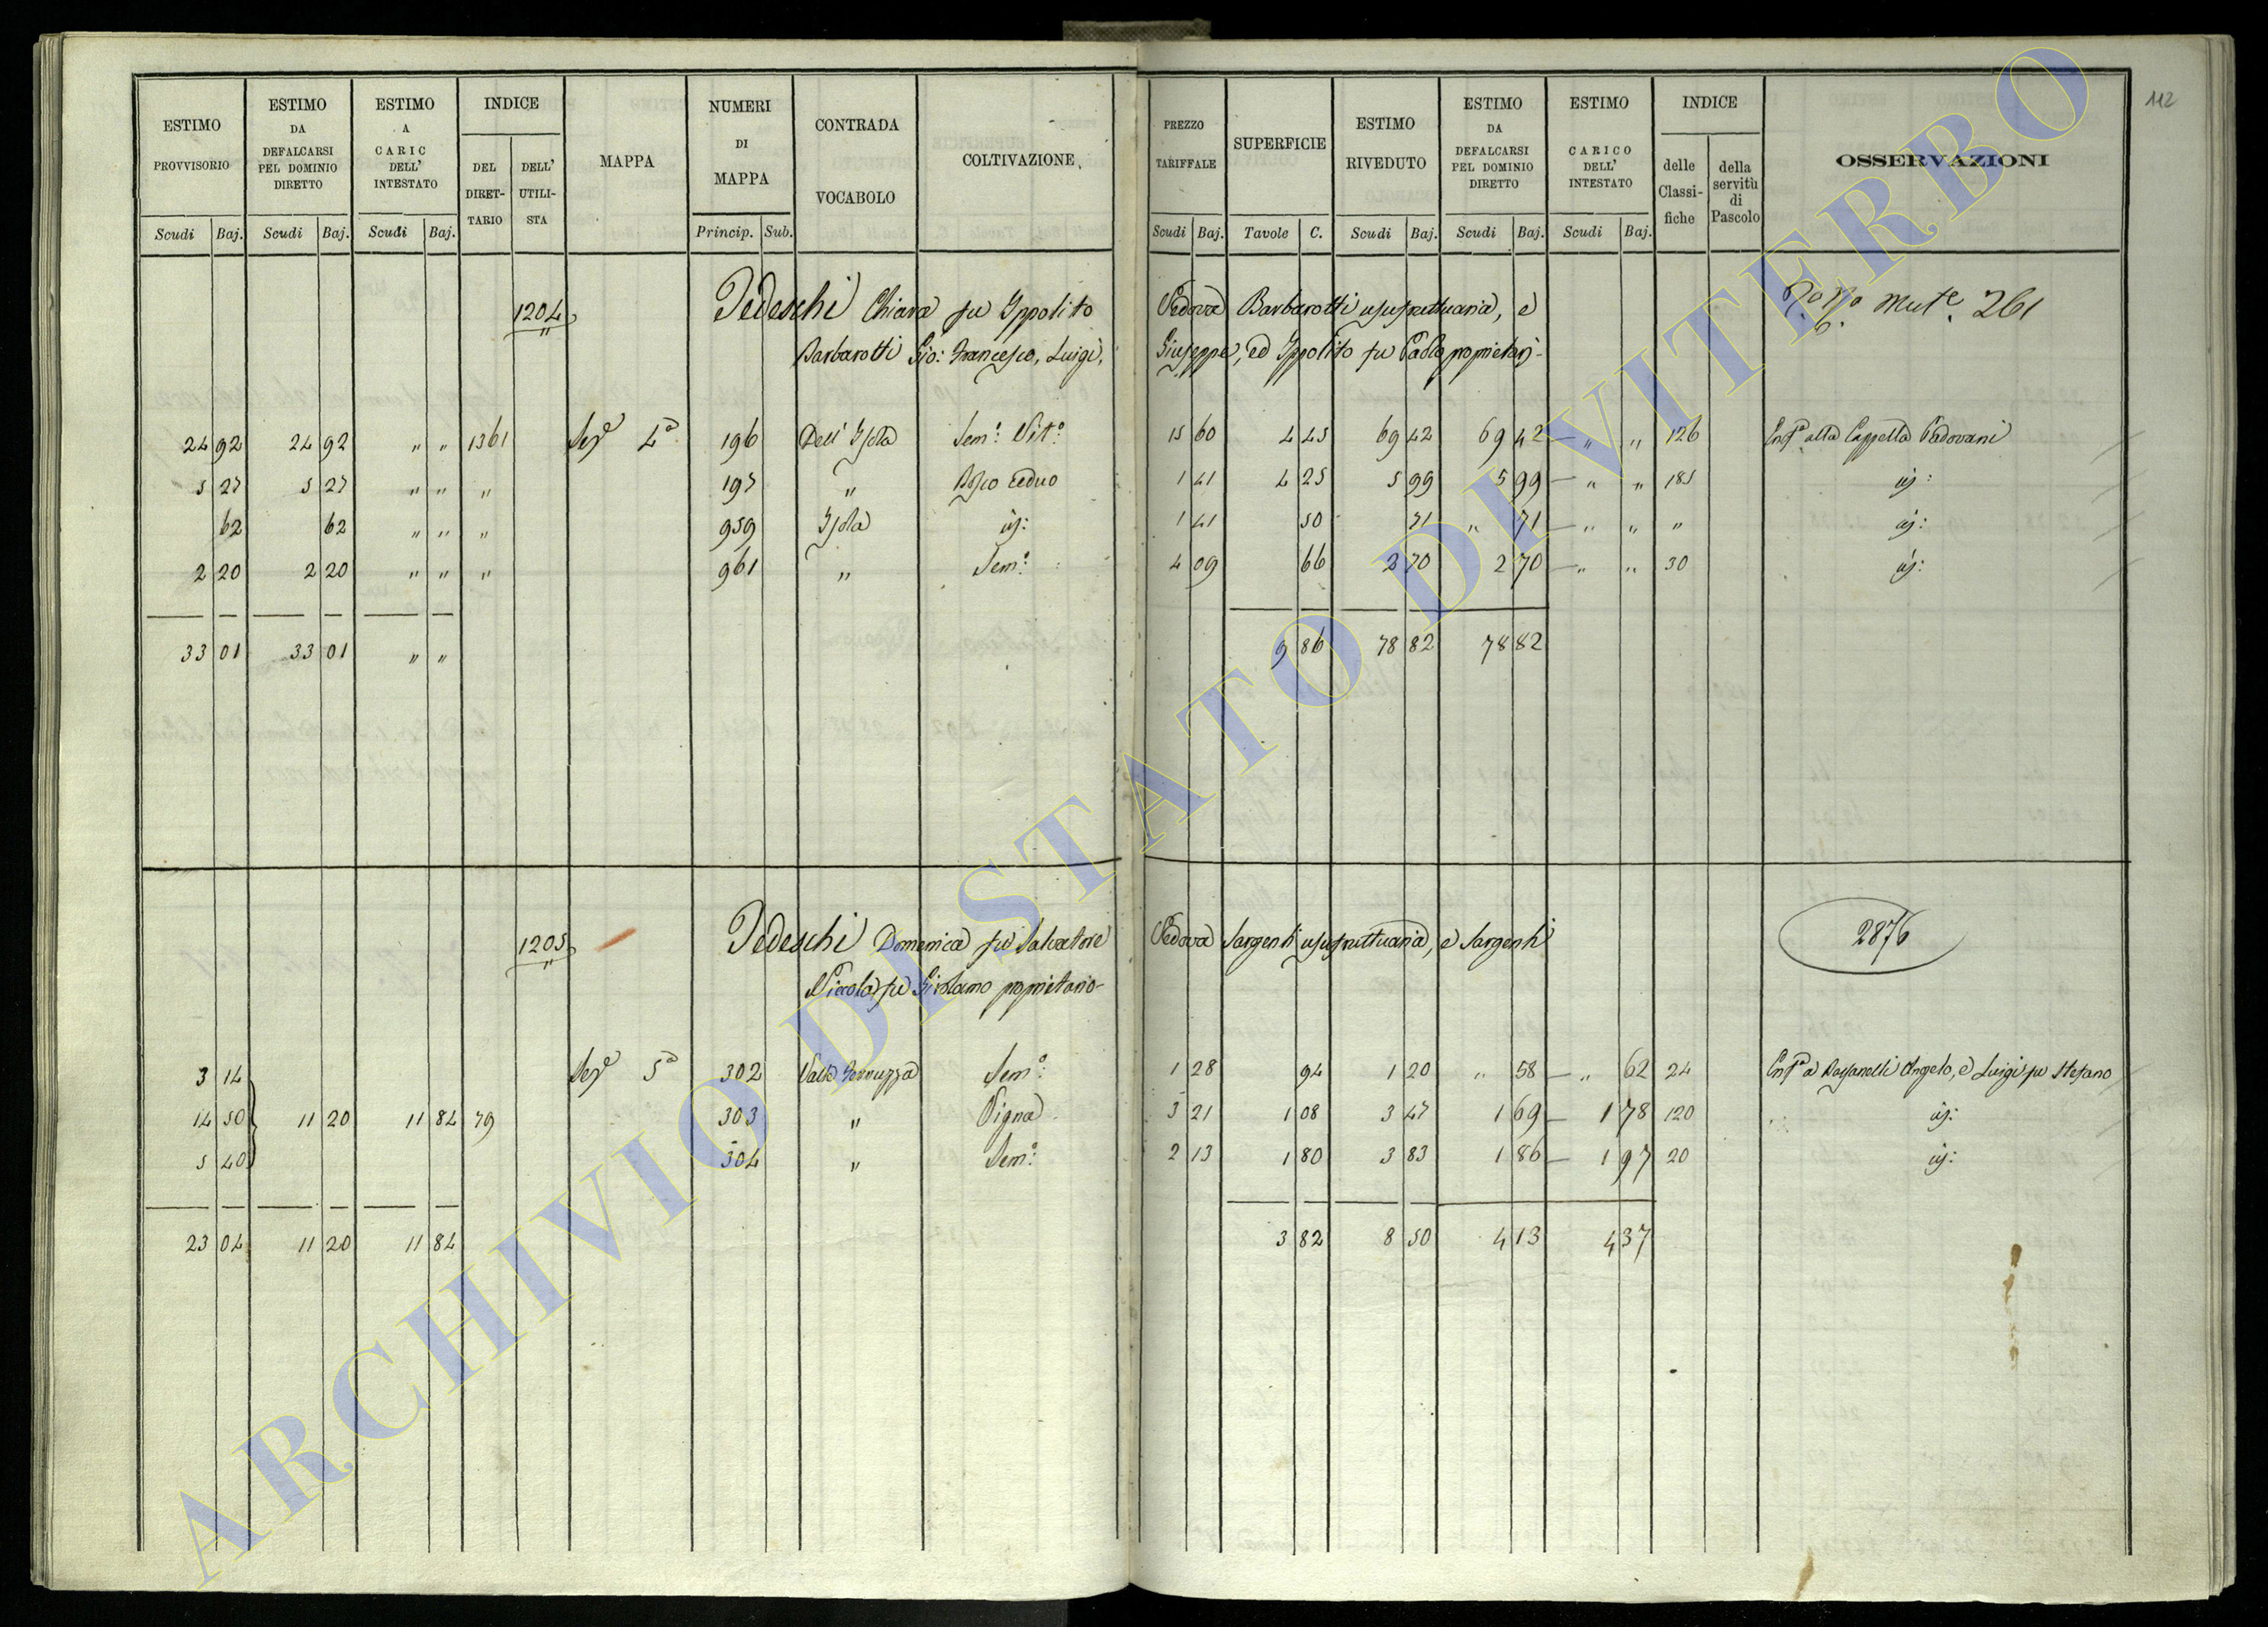 112
ESTIMO PROVVISORIO | ESTIMO DA DEFALCARSI PEL DOMINIO DIRETTO | ESTIMO A CARIC DELL' INTESTATO | INDICE | MAPPA | NUMERI DI MAPPA | CONTRADA VOCABOLO | COLTIVAZIONE | PREZZO TARIFFALE | SUPERFICIE | ESTIMO RIVEDUTO | ESTIMO DA DEFALCARSI PEL DOMINIO DIRETTO | ESTIMO A CARICO DELL' INTESTATO | INDICE | OSSERVAZIONI
DEL DIRETTARIO | DELL' UTILISTA | delle Classifiche | della servitù di Pascolo
Scudi | Baj. | Scudi | Baj. | Scudi | Baj. | Princip. | Sub. | Scudi | Baj. | Tavole | C. | Scudi | Baj. | Scudi | Baj. | Scudi | Baj.
1204 Tedeschi Chiara fu Ippolito Vedova Barbarotti usufruttuaria, e 261
Barbarotti Gio: Francesco, Luigi, Giuseppe, ed Ippolito fu Paolo proprietarj-
24 92 | 24 92 | " " | 1361 | Sezᵉ 4ª | 196 | Dell' Isola | Semᵒ: Vitᵒ: | 15 60 | 4 45 | 69 42 | 69 42 — | " " | 126 | Enfᵃ alla Cappella Padovani
5 27 | 5 27 | " " | " | 197 | " | Bosco ceduo | 1 41 | 4 25 | 5 99 | 5 99 — | " " | 185 | idj:
62 | 62 | " " | " | 959 | Isola | idj: | 1 41 | 50 | 71 | " 71 — | " " | " | idj:
2 20 | 2 20 | " " | " | 961 | " | Semᵒ: | 4 09 | 66 | 2 70 | 2 70 — | " " | 30 | idj:
33 01 | 33 01 | " " | 9 86 | 78 82 | 78 82
1205 Tedeschi Domenica fu Salvatore Vedova Sargenti usufruttuaria, e Sargenti 2876
Niccola fu Girolamo proprietario-
3 14 | Sezᵉ 5ª | 302 | Semᵒ: | 1 28 | 94 | 1 20 | " 58 — | " 62 | 24 | Enfᵃ a Angelo, e Luigi fu Stefano
14 50 | 11 20 | 11 84 | 79 | 303 | " | Vigna | 3 21 | 1 08 | 3 47 | 1 69 — | 1 78 | 120 | idj:
5 40 | 304 | " | Semᵒ: | 2 13 | 1 80 | 3 83 | 1 86 — | 1 97 | 20 | idj:
23 04 | 11 20 | 11 84 | 3 82 | 8 50 | 4 13 | 4 37
ARCHIVIO DI STATO DI VITERBO